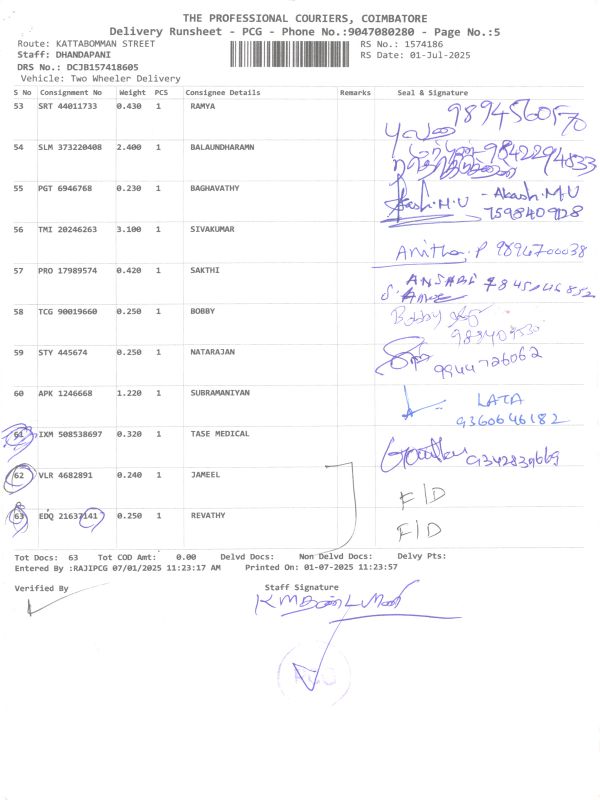 THE PROFESSIONAL COURIERS, COIMBATORE
Delivery Runsheet - PCG - Phone No.:9047080280 - Page No.:5
Route: KATTABOMMAN STREET
RS No.: 1574186
Staff: DHANDAPANI
RS Date: 01-Jul-2025
DRS No.: DCJB157418605
Vehicle: Two Wheeler Delivery
S No Consignment No Weight PCS Consignee Details Remarks Seal & Signature
53 SRT 44011733 0.430 1 RAMYA
54 SLM 373220408 2.400 1 BALAUNDHARAMN 9842294833
55 PGT 6946768 0.230 1 BAGHAVATHY Akash.M.U - Akash.M.U
7598409128
56 TMI 20246263 3.100 1 SIVAKUMAR Anitha.P
57 PRO 17989574 0.420 1 SAKTHI
58 TCG 90019660 0.250 1 BOBBY Bobby
59 STY 445674 0.250 1 NATARAJAN 9944726062
60 APK 1246668 1.220 1 SUBRAMANIYAN LATA
9360646182
61 IXM 508538697 0.320 1 TASE MEDICAL 9342839669
62 VLR 4682891 0.240 1 JAMEEL F/D
63 EDQ 21637141 0.250 1 REVATHY F/D
Tot Docs: 63 Tot COD Amt: 0.00 Delvd Docs: Non Delvd Docs: Delvy Pts:
Entered By :RAJIPCG 07/01/2025 11:23:17 AM Printed On: 01-07-2025 11:23:57
Verified By
Staff Signature